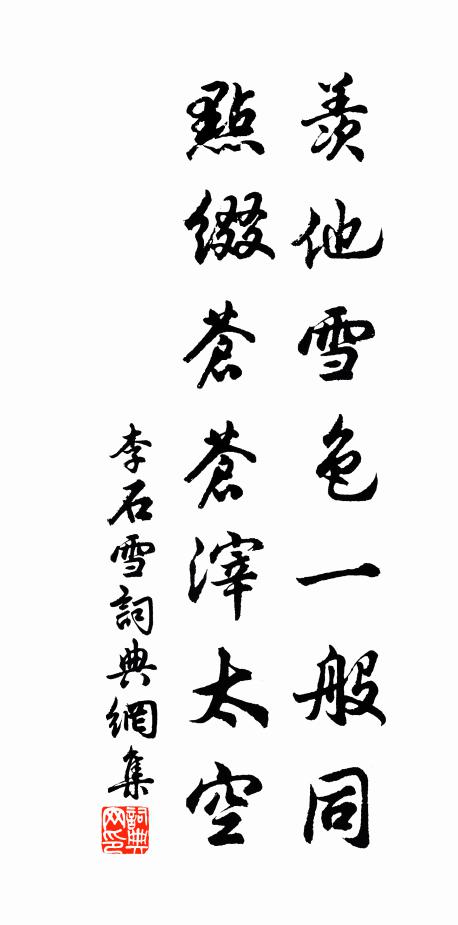 羨他雪色一般同
點綴蒼蒼滓太空
李石雪詞典網集
詞典網印